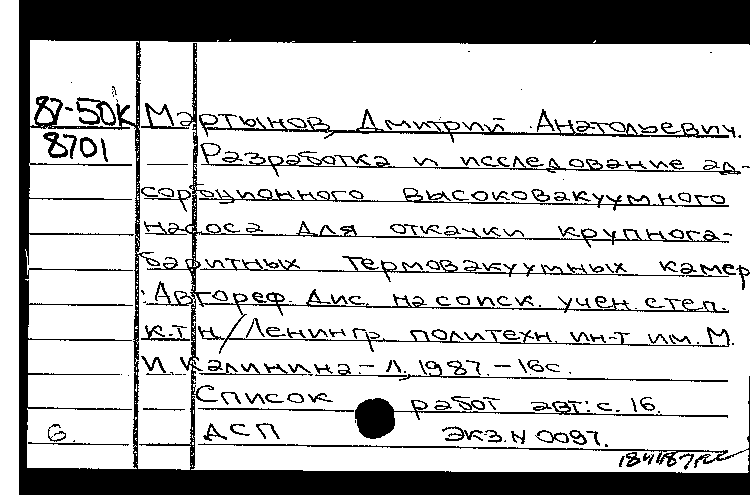 87-50К Мартынов, Дмитрий Анатольевич.
8701 Разработка и исследование ад-
сорбционного высоковакуумного
насоса для откачки крупнога-
баритных термовакуумных камер
: Автореф. дис. на соиск. учен. степ.
к.т.н / Ленингр. политехн. ин-т им. М.
И. Калинина. - Л, 1987. - 16с.
Список работ авт: с. 16.
б. ДСП ЭКЗ. N 0097.